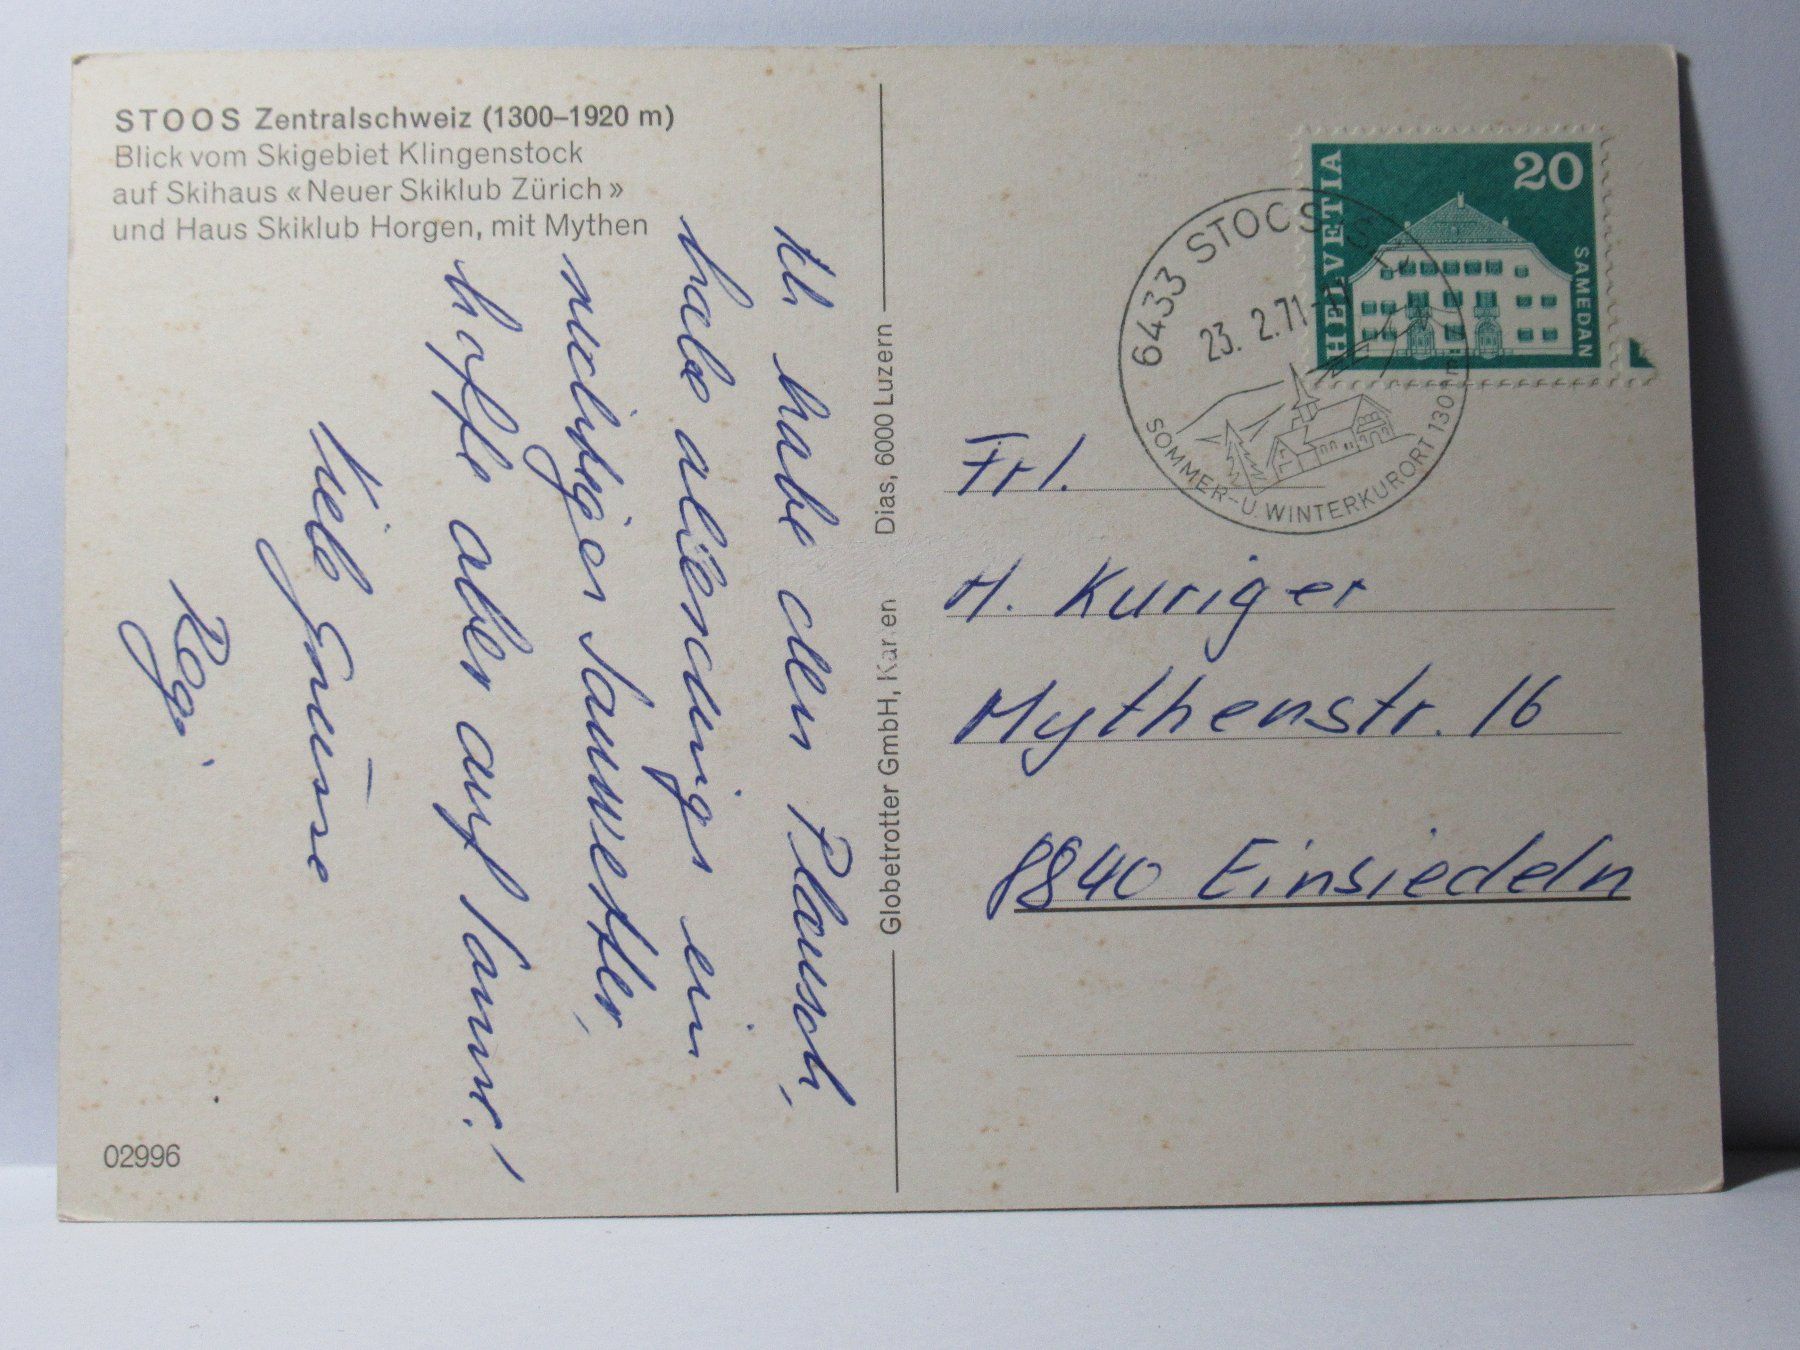 STOOS Zentralschweiz (1300–1920 m)
Blick vom Skigebiet Klingenstock
auf Skihaus «Neuer Skiklub Zürich»
und Haus Skiklub Horgen, mit Mythen
habe den Plausch,
habe allerdings ein
hoffe aber auf
Viele Grüsse
02996
Globetrotter GmbH, Karten Dias, 6000 Luzern
HELVETIA
20
SAMEDAN
6433 STOOS
23. 2.71
SOMMER-U. WINTERKURORT 130 m
Frl.
M. Kuriger
Mythenstr. 16
8840 Einsiedeln